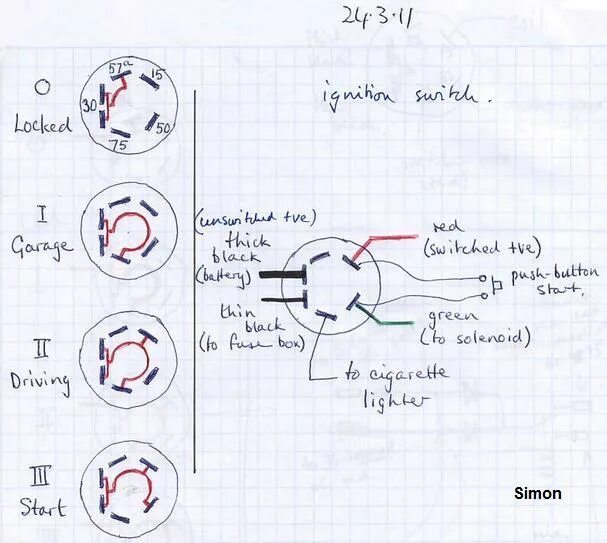 24.3.11
ignition switch.
O
Locked
57a
15
30
50
75
I
Garage
II
Driving
III
Start
(unswitched +ve)
thick
black
(battery)
thin
black
(to fuse box)
red
(switched +ve)
push-button
start.
green
(to solenoid)
to cigarette
lighter
Simon